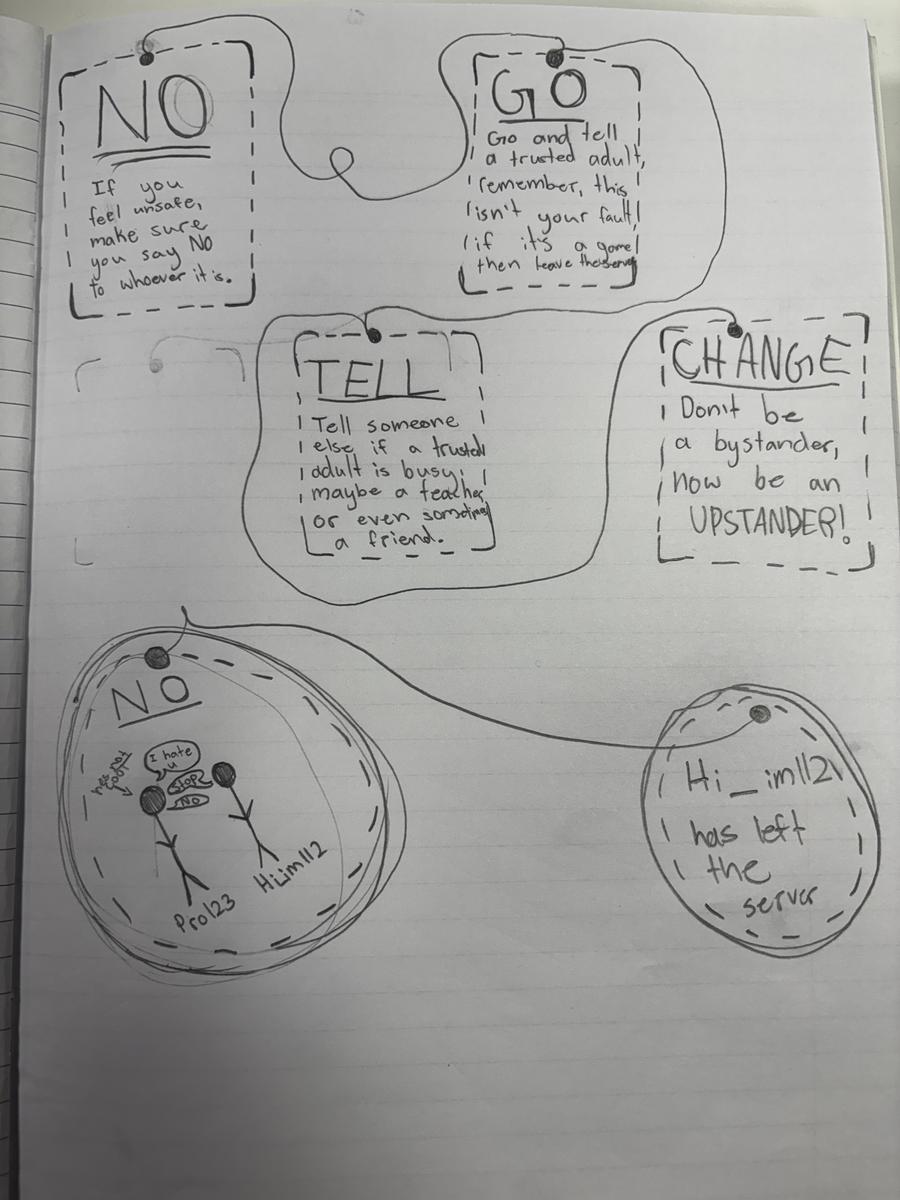 NO
If you
feel unsafe,
make sure
you say NO
to whoever it is.
GO
Go and tell
a trusted adult,
remember, this
isn't your fault,
if it's a game
then leave the server
TELL
Tell someone
else if a trusted
adult is busy,
maybe a teacher,
or even sometimes
a friend.
CHANGE
Don't be
a bystander,
now be an
UPSTANDER!
NO
I hate
u
Stop
NO
not
cool
Pro123
Hi_im112
Hi_im112
has left
the
server